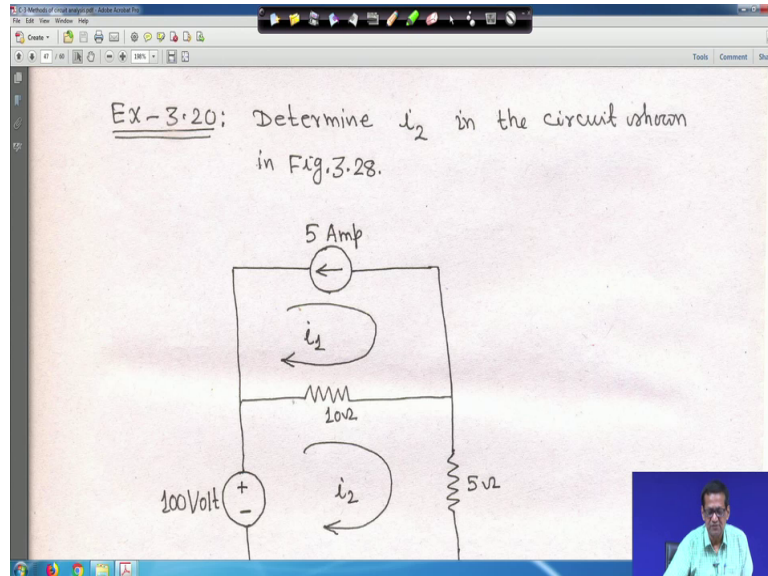 C-3-Methods of circuit analysis.pdf - Adobe Acrobat Pro
File Edit View Window Help
Create
47 / 60 198%
Tools Comment Sha
Ex-3.20: Determine i2 in the circuit shown
in Fig.3.28.
5 Amp
i1
10Ω
100Volt
+
-
i2
5Ω